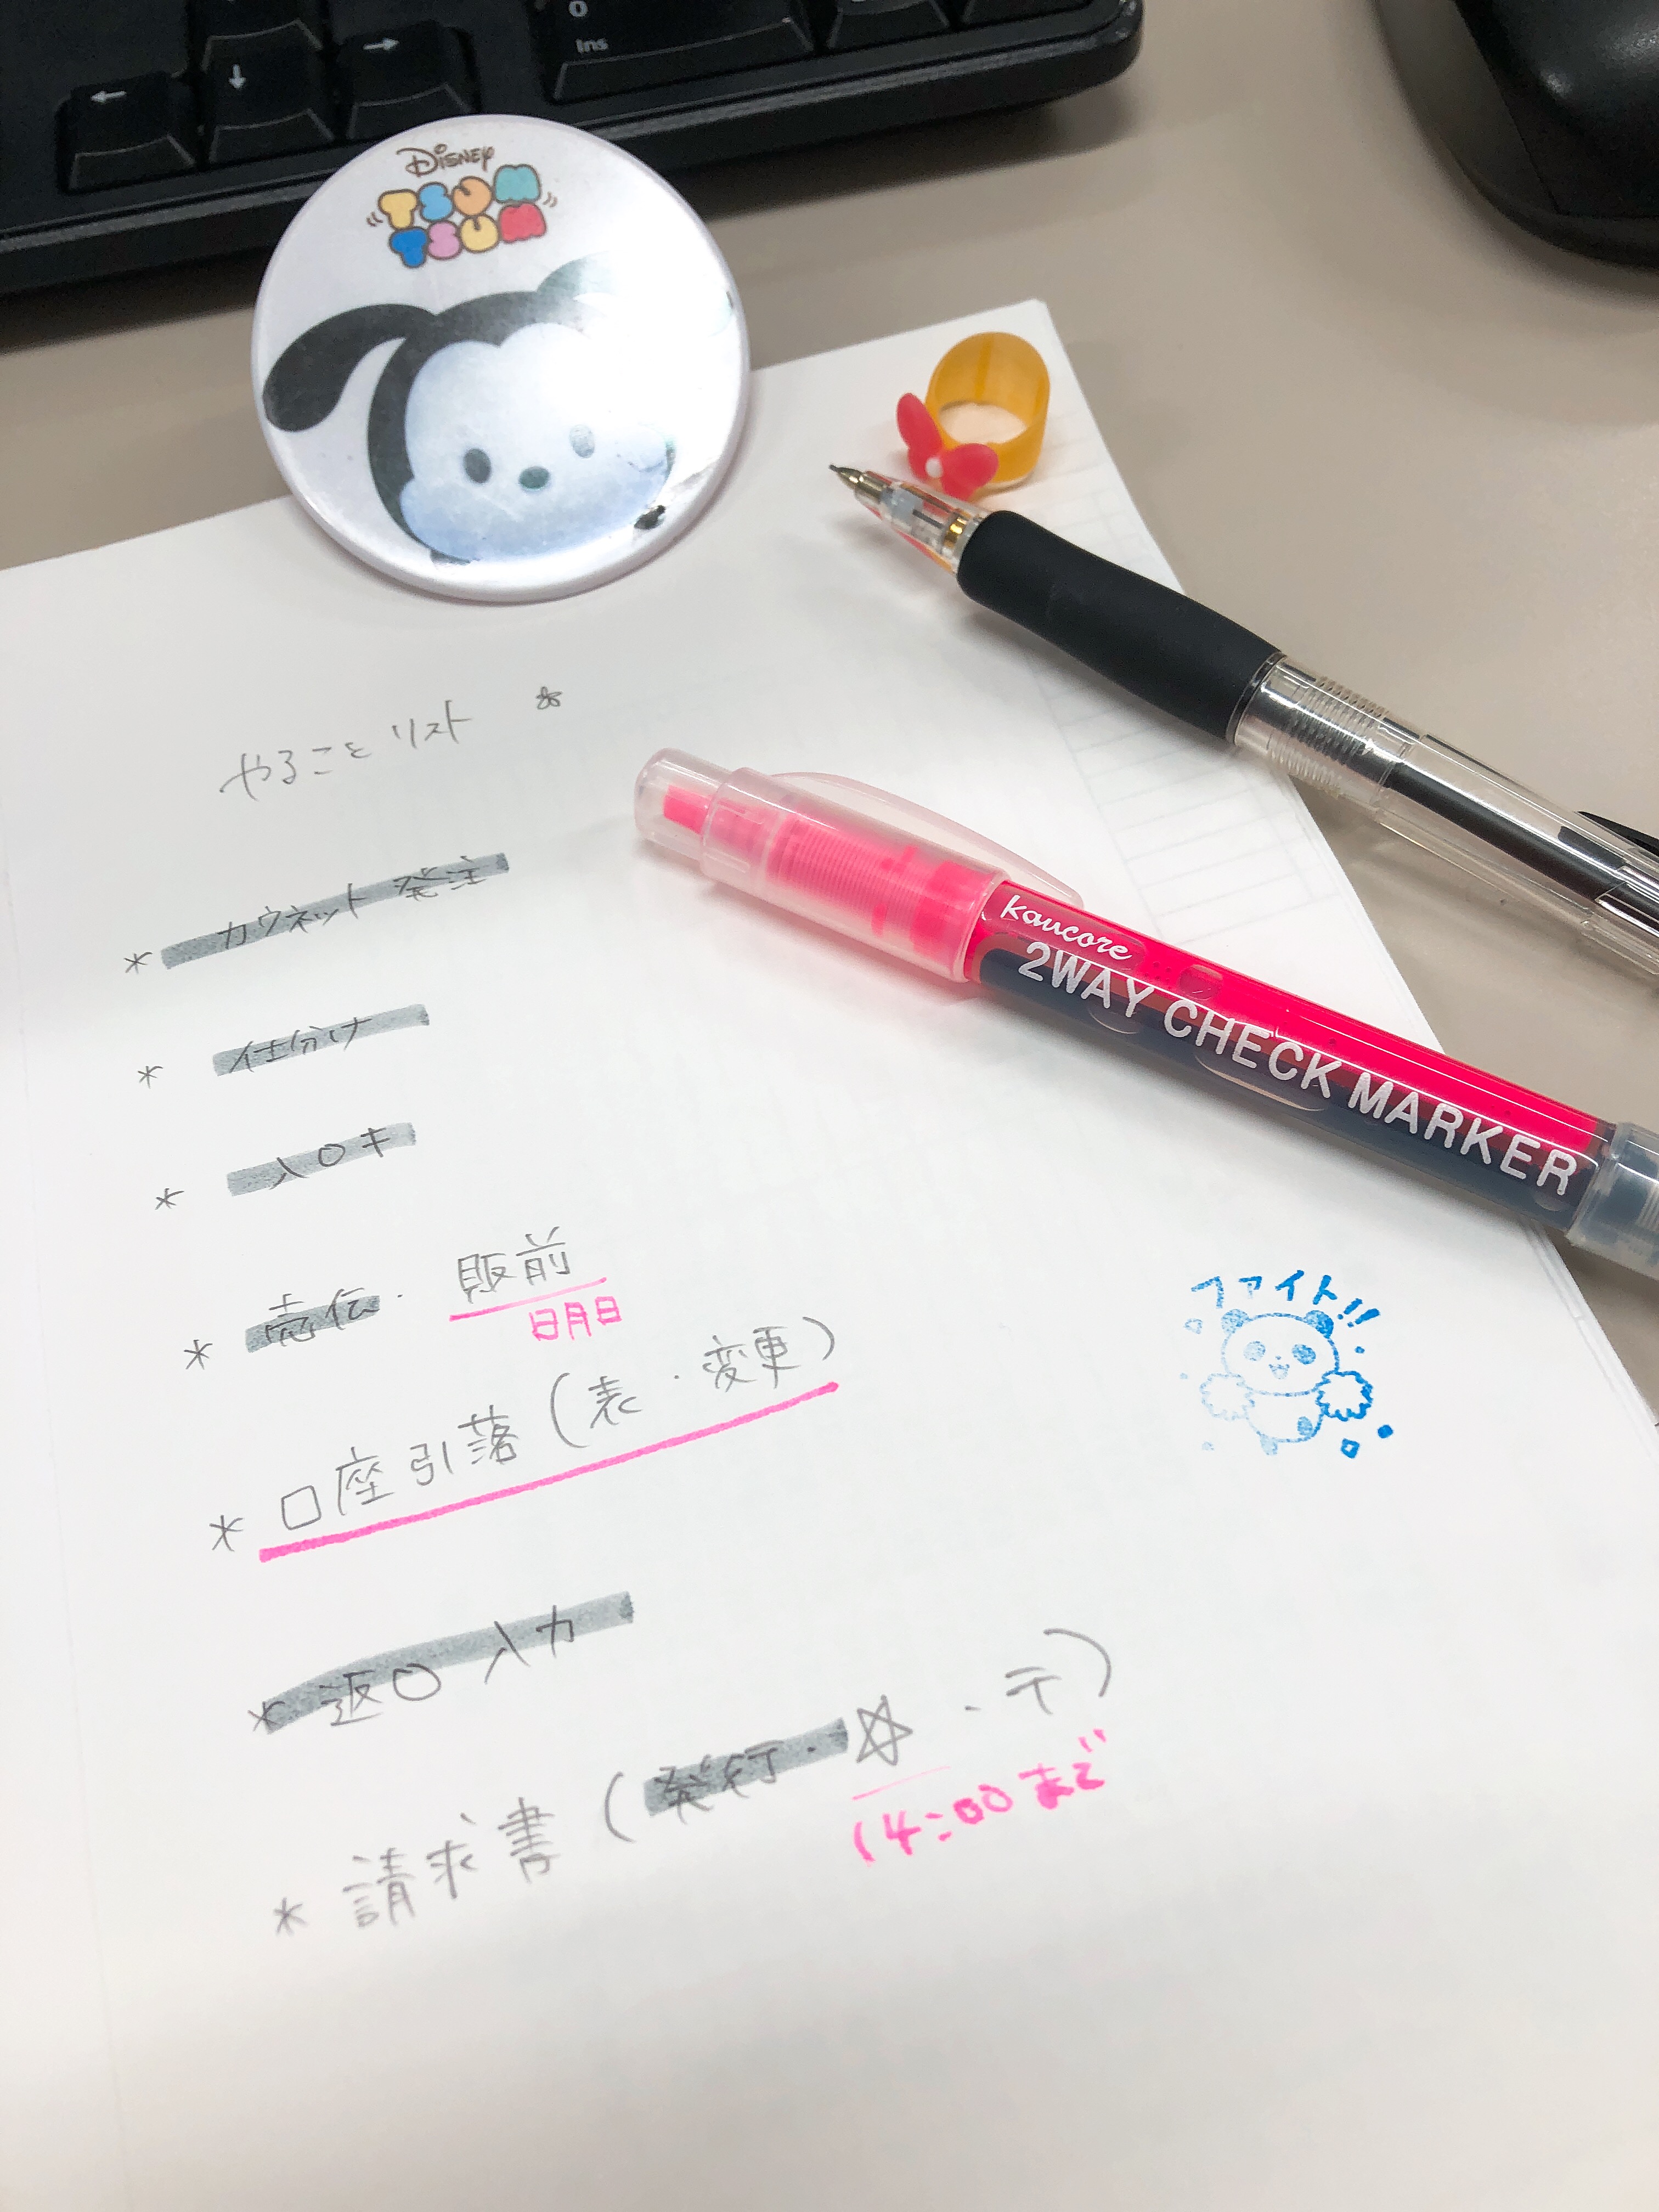 ←
↓
→
0
Ins
Disney
TSUM
TSUM
やることリスト *
* カウネット 発注
* 仕分け
* 入〇キ
* 売伝・販前
日月日
* 口座引落(表・変更)
* 返〇 入力
* 請求書(発行・☆・テ)
14:00まで
kaucore
2WAY CHECK MARKER
ファイト!!